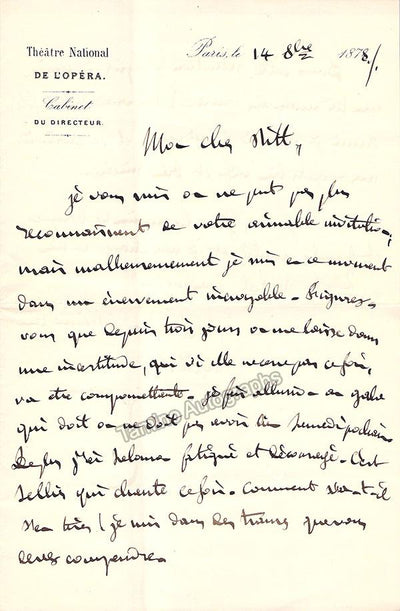 Théâtre National
DE L'OPÉRA.
Cabinet
DU DIRECTEUR.
Paris, le 14 8bre 1878/.
Mon cher
je vous suis on ne peut pas plus
reconnaissant de votre aimable invitation,
mais malheureusement je suis en ce moment
dans un énervement incroyable - Figurez-
vous que depuis trois jours on me laisse dans
une incertitude, qui si elle ne cesse pas ce soir,
va être compromettante - je fais allusion au gala
qui doit ou ne doit pas avoir lieu Samedi prochain
De plus j'ai Salomon fatigué et découragé - C'est
Sellier qui chante ce soir - Comment va-t-il
s'en tirer! je suis dans des transes que vous
devez comprendre -
Tamino Autographs